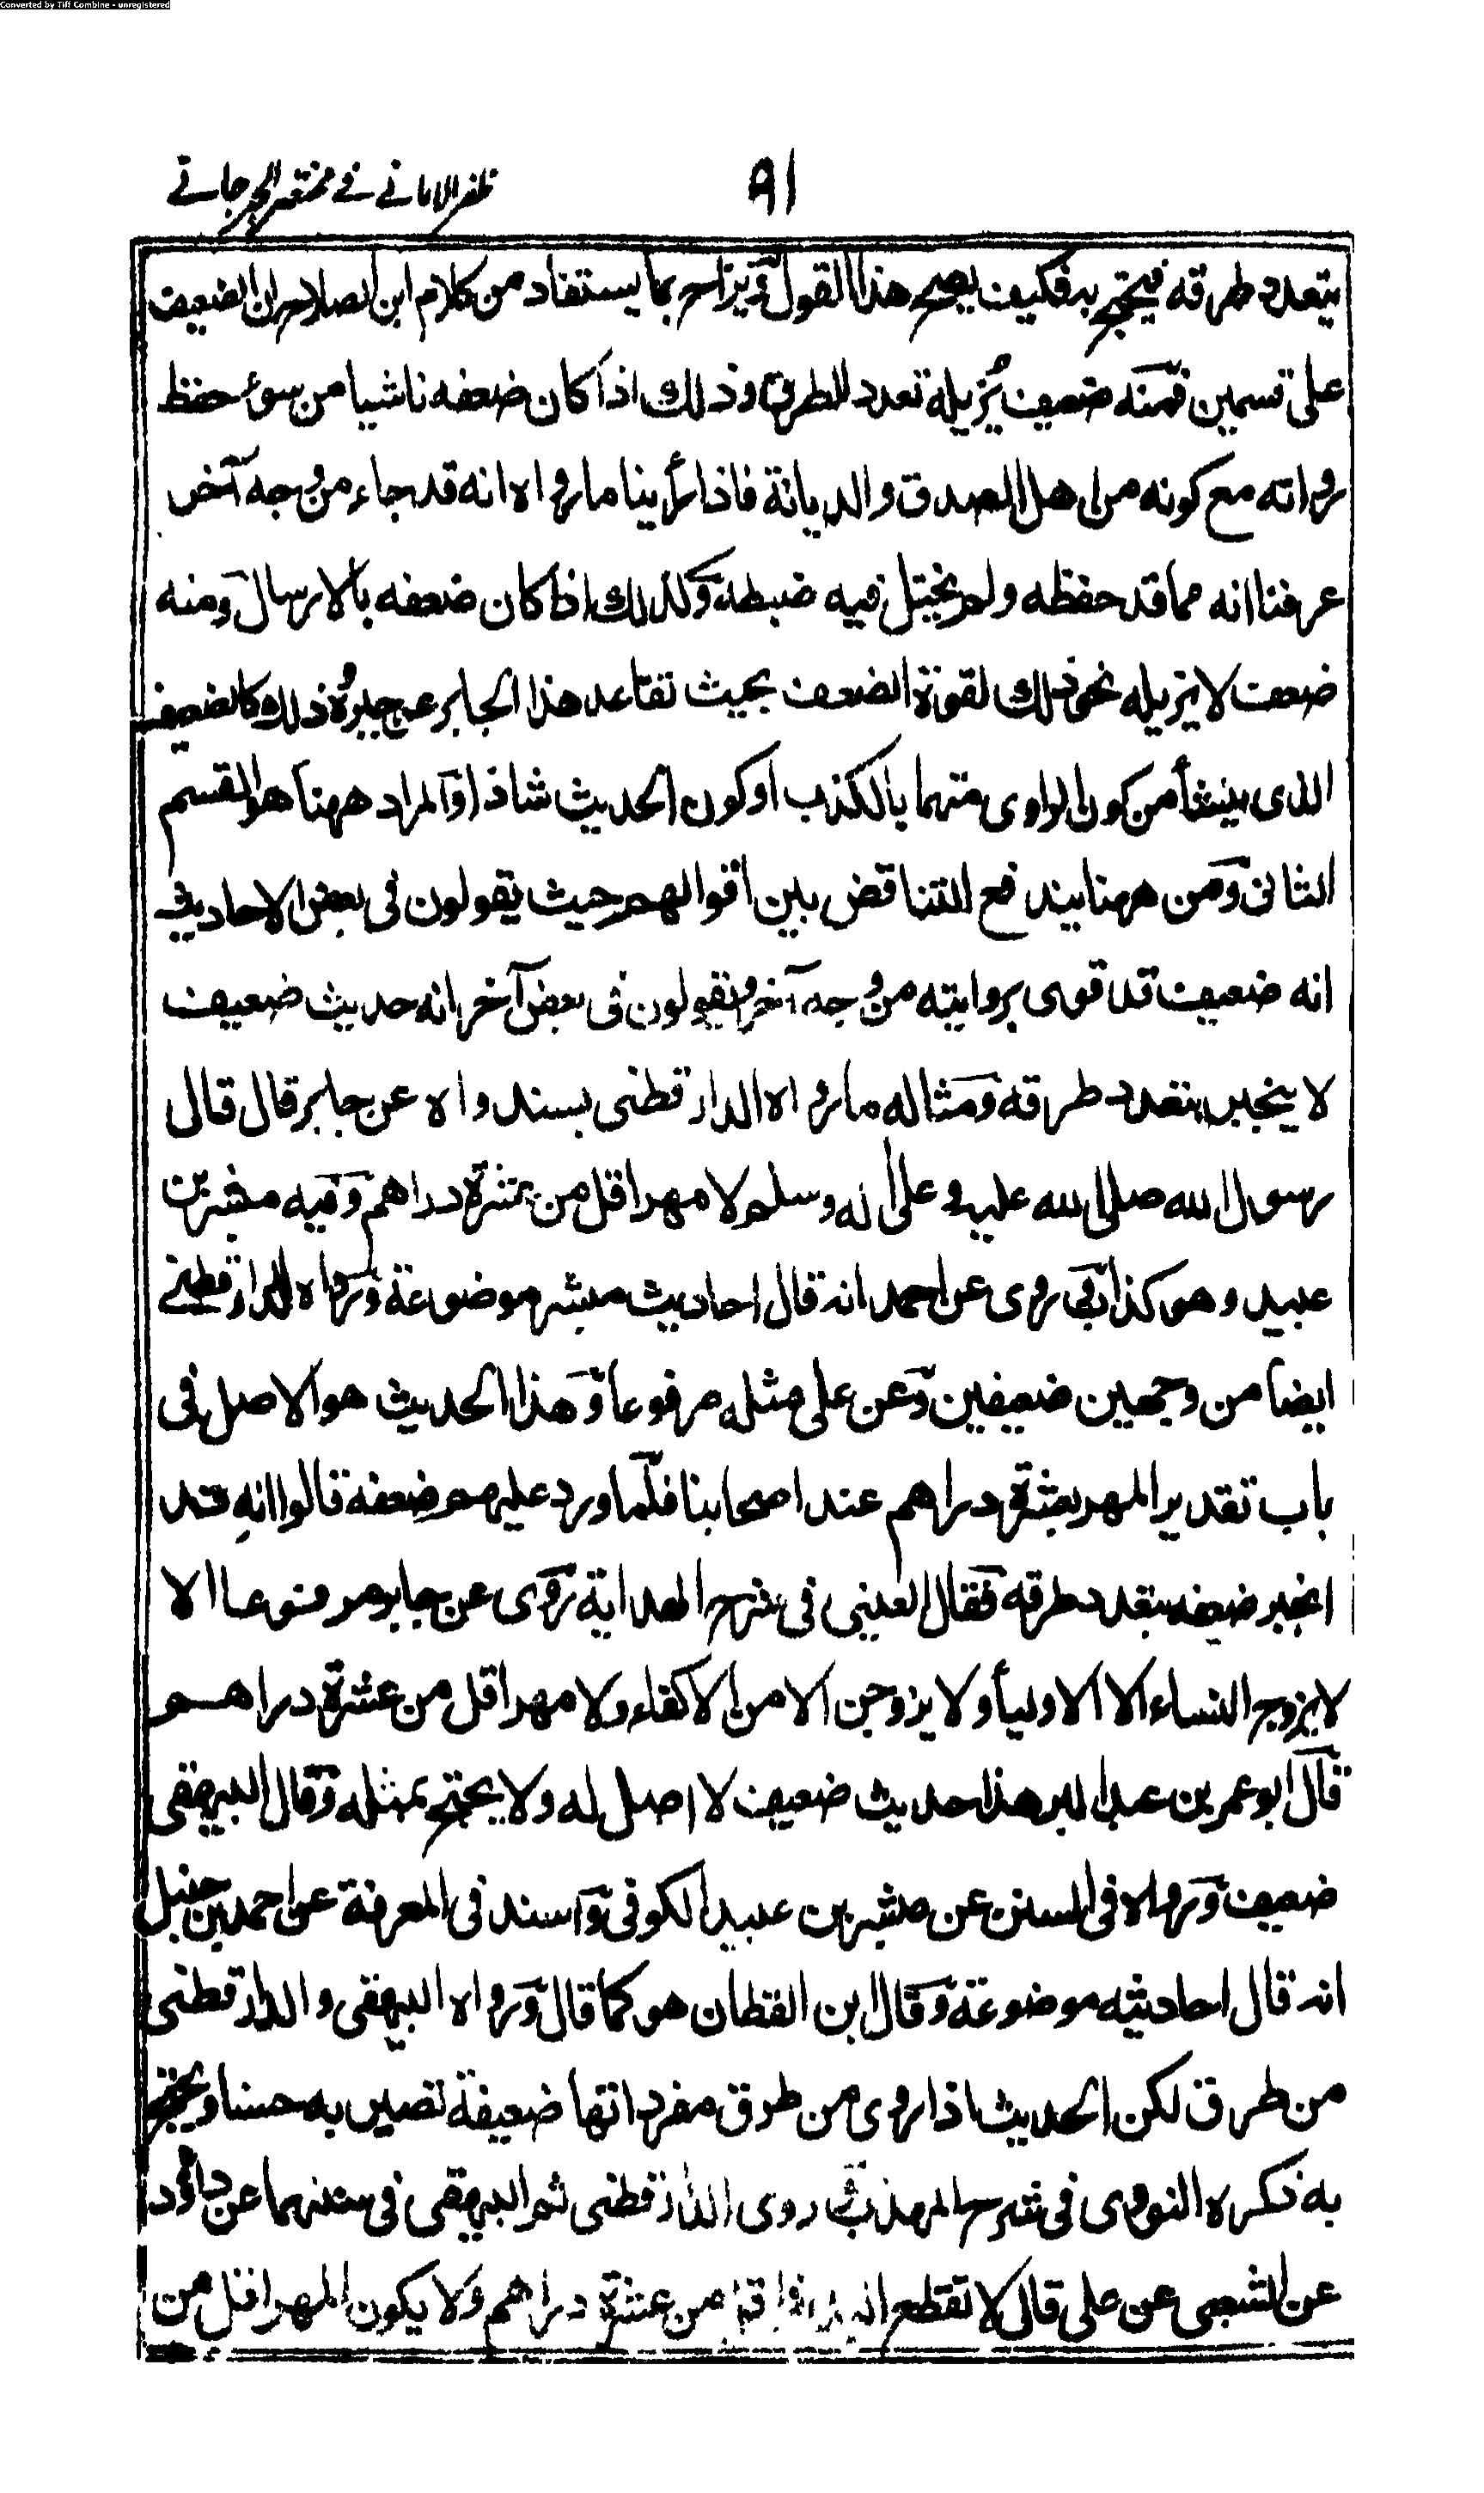 Converted by Tiff Combine - unregistered
٩١
ظفر الاماني في مختصر الجرجاني
يتعدد طرقه فيحتج به فكيف يصح هذا القول ويزاح بما يستفاد من كلام ابن الصلاح ان الضعيف
على قسمين فمنه ضعيف يُزيله تعدد الطرق وذلك اذا كان ضعفه ناشيا من سوء حفظ
رواته مع كونه من اهل الصدق والديانة فاذا رأينا ما رواه انه قد جاء من وجه آخر
عرفنا انه مما قد حفظه ولم يختل فيه ضبطه وكذلك اذا كان ضعفه بالارسال ومنه
ضعف لا يزيله نحو ذلك لقوة الضعف بحيث تقاعد هذا الجابر عن جبره ذلك كالضعيف
الذى ينشأ من كون الراوى متهما بالكذب او كون الحديث شاذا والمراد ههنا هو القسم
الثانى ومن ههنا يندفع التناقض بين اقوالهم حيث يقولون فى بعض الاحاديث
انه ضعيف قد قوى بروايته من وجه آخر ويقولون فى بعض آخر انه حديث ضعيف
لا ينجبر بتعدد طرقه ومثاله ما رواه الدارقطنى بسند واه عن جابر قال قال
رسول الله صلى الله عليه وعلى اله وسلم لا مهر اقل من عشرة دراهم وفيه مبشر بن
عبيد وهو كذاب روى عن احمد انه قال احاديث مبشر موضوعة ورواه الدارقطنے
ايضا من وجهين ضعيفين وعن على مثله مرفوعا وهذا الحديث هو الاصل فى
باب تقدير المهر بعشرة دراهم عند اصحابنا فلما ورد عليهم ضعفه قالوا انه قد
انجبر ضعفه بتعدد طرقه فقال العينى فى شرح الهداية روى عن جابر مرفوعا الا
لا يزوج النساء الا الاوليأ ولا يزوجن الا من الاكفاء ولا مهر اقل من عشرة دراهم
قال ابو عمر بن عبد البر هذا حديث ضعيف لا اصل له ولا يحتج بمثله وقال البيهقى
ضعيف ورواه فى السنن عن مبشر بن عبيد الكوفى واسند فى المعرفة عن احمد بن حنبل
انه قال احاديثه موضوعة وقال ابن القطان هو كما قال ورواه البيهقى والدارقطنى
من طرق لكن الحديث اذا روى من طرق مفرداتها ضعيفة تصير به حسنا ويحتج
به ذكره النووى فى شرح المهذب روى الدارقطنى ثم البيهقى فى سننهما عن داؤد
عن الشعبى عن على قال لا تقطع اليد من عشرة دراهم ولا يكون المهر اقل من